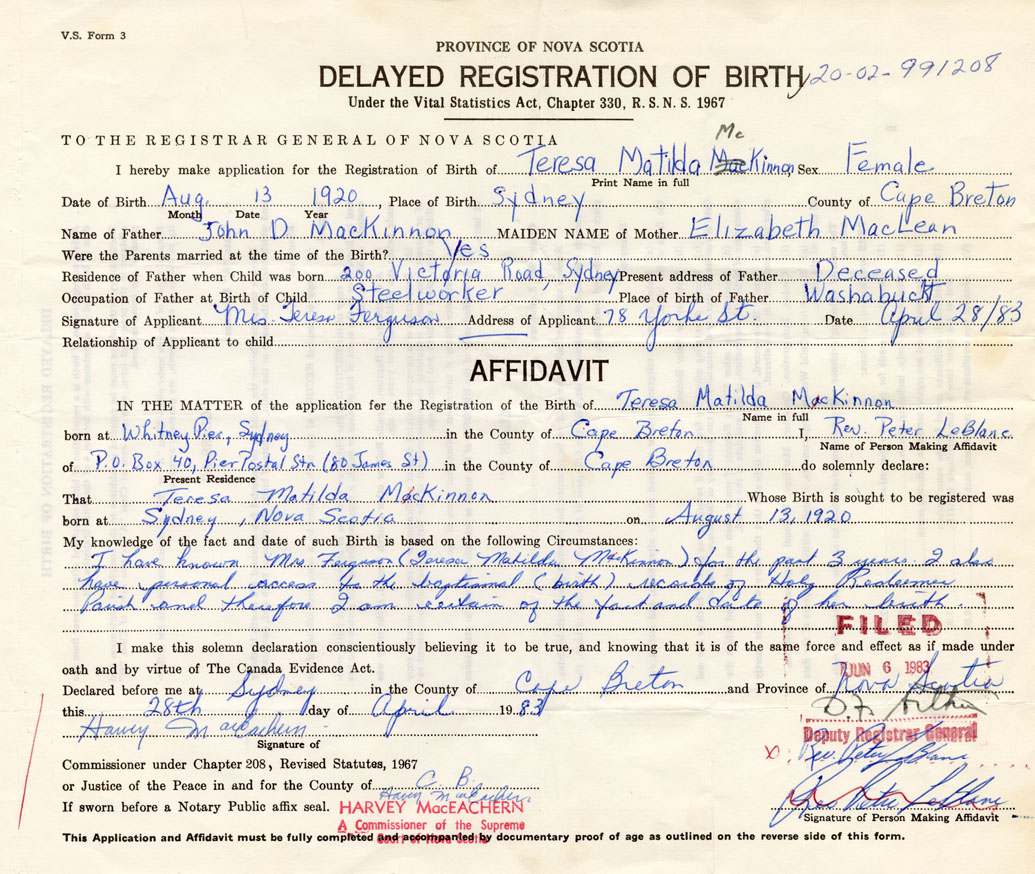 V.S. Form 3
PROVINCE OF NOVA SCOTIA
DELAYED REGISTRATION OF BIRTH 20-02-991208
Under the Vital Statistics Act, Chapter 330, R. S. N. S. 1967
TO THE REGISTRAR GENERAL OF NOVA SCOTIA
Mc
I hereby make application for the Registration of Birth of Teresa Matilda MacKinnon Sex Female
Print Name in full
Date of Birth Aug. 13 1920, Place of Birth Sydney County of Cape Breton
Month Date Year
Name of Father John D MacKinnon MAIDEN NAME of Mother Elizabeth MacLean
Were the Parents married at the time of the Birth? Yes
Residence of Father when Child was born 200 Victoria Road, Sydney Present address of Father Deceased
Occupation of Father at Birth of Child Steelworker Place of birth of Father Washabuckt
Signature of Applicant Mrs. Teresa Ferguson Address of Applicant 78 Yorke St. Date April 28/83
Relationship of Applicant to child
AFFIDAVIT
IN THE MATTER of the application for the Registration of the Birth of Teresa Matilda MacKinnon
Name in full
born at Whitney Pier, Sydney in the County of Cape Breton I, Rev. Peter LeBlanc
Name of Person Making Affidavit
of P.O. Box 40, Pier Postal Stn (80 James St) in the County of Cape Breton do solemnly declare:
Present Residence
That Teresa Matilda MacKinnon Whose Birth is sought to be registered was
born at Sydney, Nova Scotia on August 13, 1920
My knowledge of the fact and date of such Birth is based on the following Circumstances:
I have known Mrs Ferguson (Teresa Matilda MacKinnon) for the past 3 years I also
have personal access to the baptismal (birth) records of Holy Redeemer
Parish and therefore I am certain of the fact and date of her birth.
FILED
I make this solemn declaration conscientiously believing it to be true, and knowing that it is of the same force and effect as if made under
oath and by virtue of The Canada Evidence Act.
JUN 6 1983
Declared before me at Sydney in the County of Cape Breton and Province of Nova Scotia
this 28th day of April 1983
Deputy Registrar General
Harvey MacEachern
Rev. Peter LeBlanc
Signature of
Commissioner under Chapter 208, Revised Statutes, 1967
or Justice of the Peace in and for the County of C. B.
Harvey MacEachern
If sworn before a Notary Public affix seal. HARVEY MacEACHERN
Rev Peter LeBlanc
Signature of Person Making Affidavit
A Commissioner of the Supreme
Court of Nova Scotia
This Application and Affidavit must be fully completed and accompanied by documentary proof of age as outlined on the reverse side of this form.